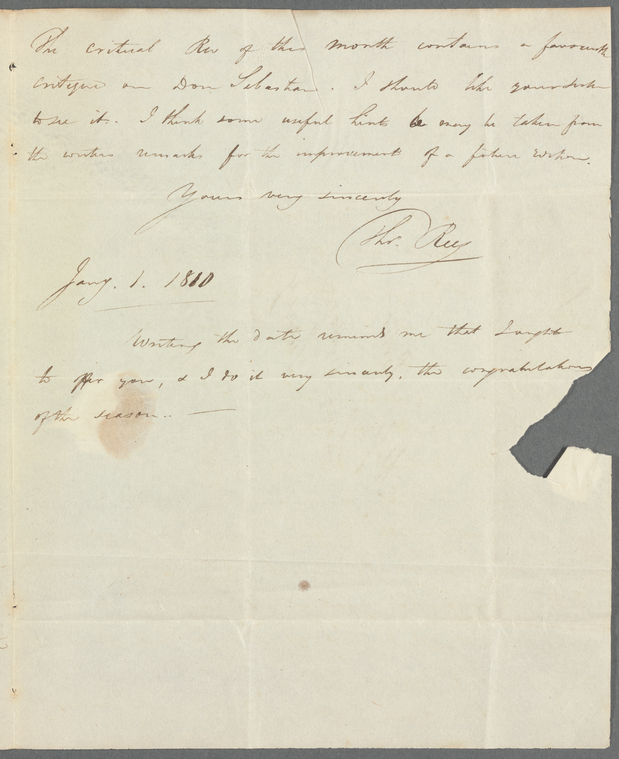 The critical Rev of this month contains a favourable
critique on Don Sebastian. I should like your sister
to see it. I think some useful hints may be taken from
the writers remarks for the improvement of a future Edition.
Yours very sincerely
Thos. Rees
Jany. 1. 1810
Writing the date reminds me that I ought
to offer you, & I do it very sincerely, the congratulations
of the season.. —